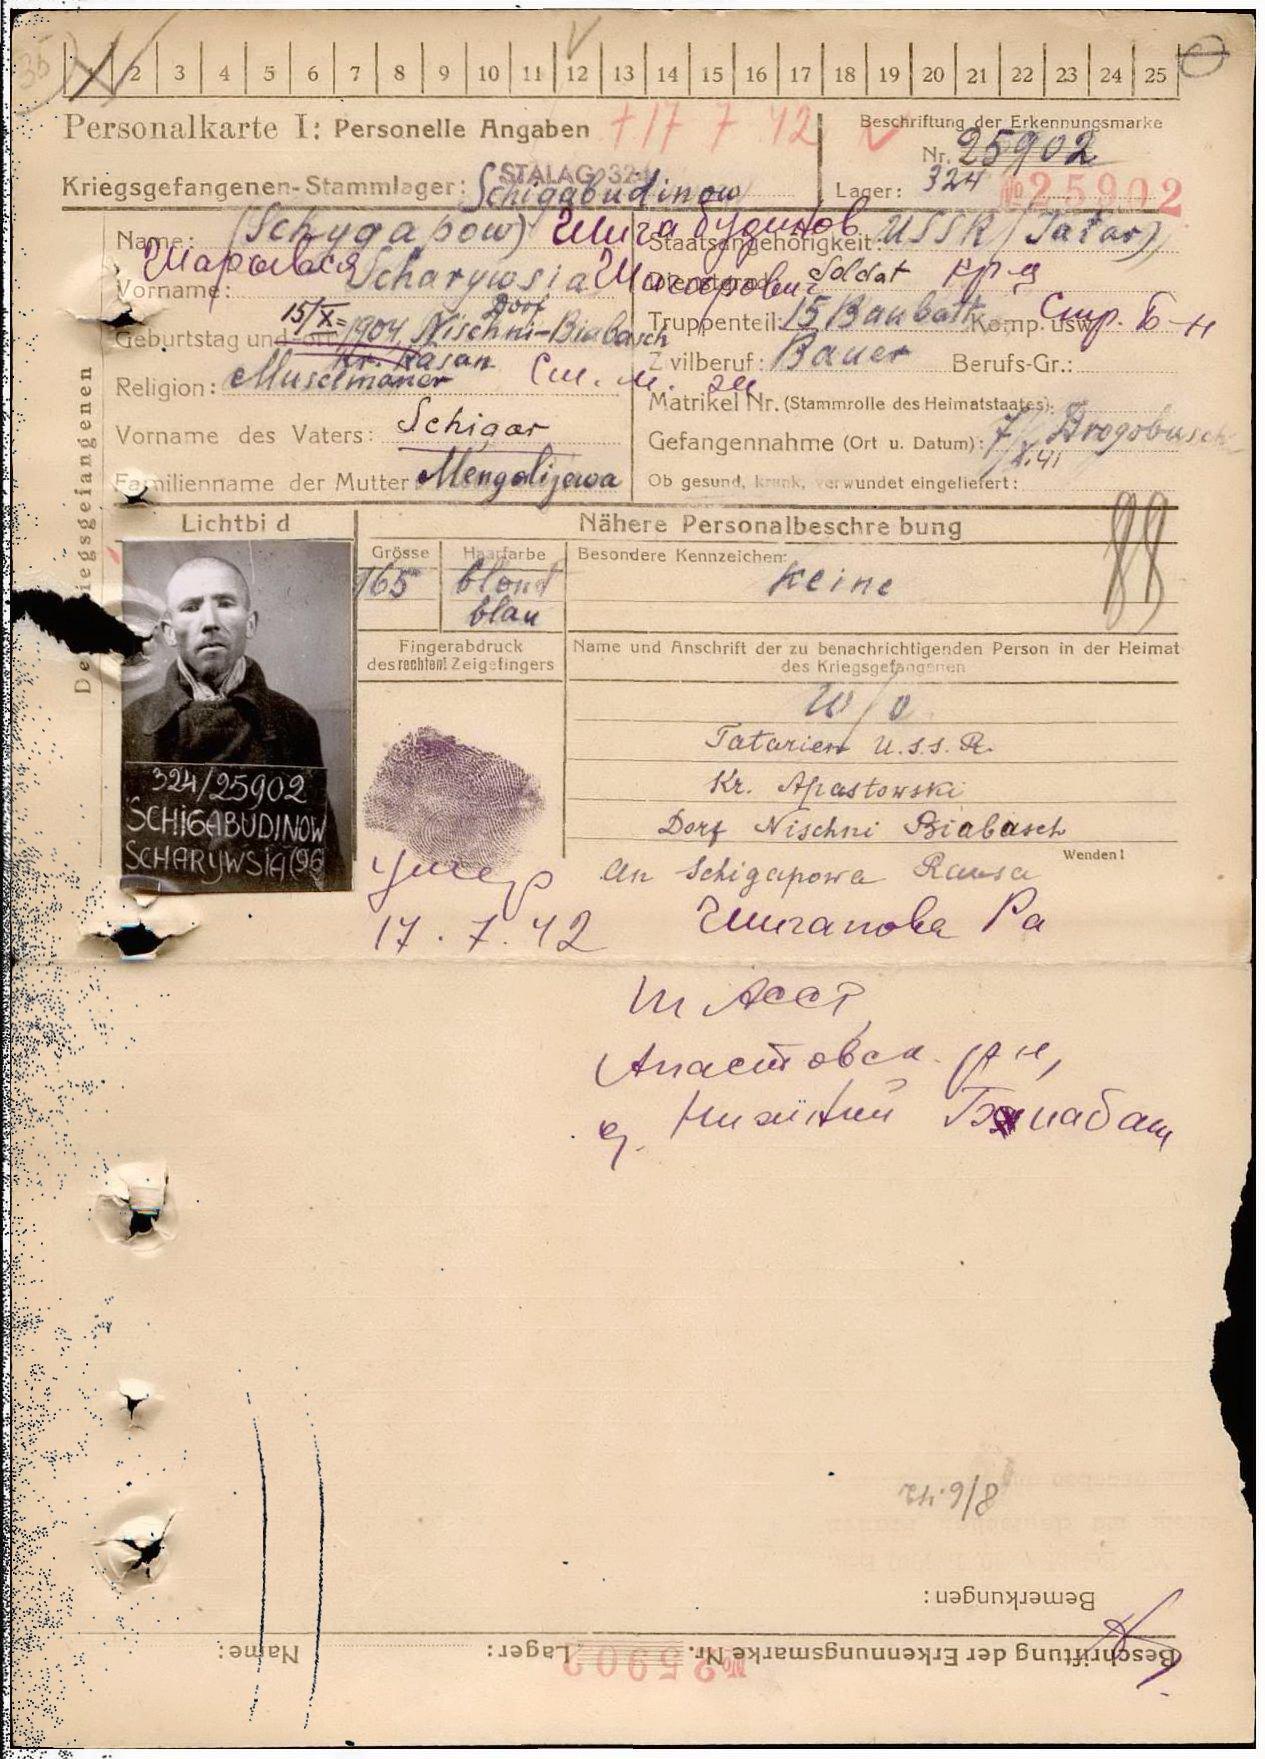 2 3 4 5 6 7 8 9 10 11 12 13 14 15 16 17 18 19 20 21 22 23 24 25
Personalkarte I: Personelle Angaben
+17 7 42
Beschriftung der Erkennungsmarke
Nr. 25902
Kriegsgefangenen-Stammlager: STALAG 324
Schigabudinow
Lager: 324
№ 25902
Des Kriegsgefangenen
Name: (Schygapow) Шигабудинов
Staatsangehörigkeit: USSR (Tatar)
Vorname: Scharywsia
Dienstgrad: Soldat кр-ц
Geburtstag und -ort: 15/X = 1904. Dorf Nischni-Biabasch
Kr. Kasan
Truppenteil: 15 Baubatt. Komp. usw.: Стр. Б-н
Religion: Muselmaner
Zivilberuf: Bauer Berufs-Gr.:
Matrikel Nr. (Stammrolle des Heimatstaates):
Vorname des Vaters: Schigar
Gefangennahme (Ort u. Datum): 7/X.41 Drogobusch
Familienname der Mutter: Mengalijewa
Ob gesund, krank, verwundet eingeliefert:
Lichtbild
Nähere Personalbeschreibung
Grösse
Haarfarbe
Besondere Kennzeichen:
165
blond
blau
keine
Fingerabdruck
des rechten! Zeigefingers
Name und Anschrift der zu benachrichtigenden Person in der Heimat
des Kriegsgefangenen
W/o
Tatarien U.S.S.R.
Kr. Apastowski
Dorf Nischni Biabasch
Wenden!
An Schigapowa Rausa
324/25902
SCHIGABUDINOW
SCHARYWSIA (96
умер
17.7.42
Шигапова Ра
Т АССР
Апастовск. р-н,
д. Нижний Биабаш
8/6.42
Bemerkungen:
Beschriftung der Erkennungsmarke Nr. № 25902 Lager: Name: